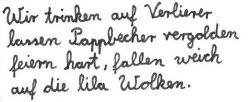 Wir trinken auf Verlierer
lassen Pappbecher vergolden
feiern hart, fallen weich
auf die lila Wolken.